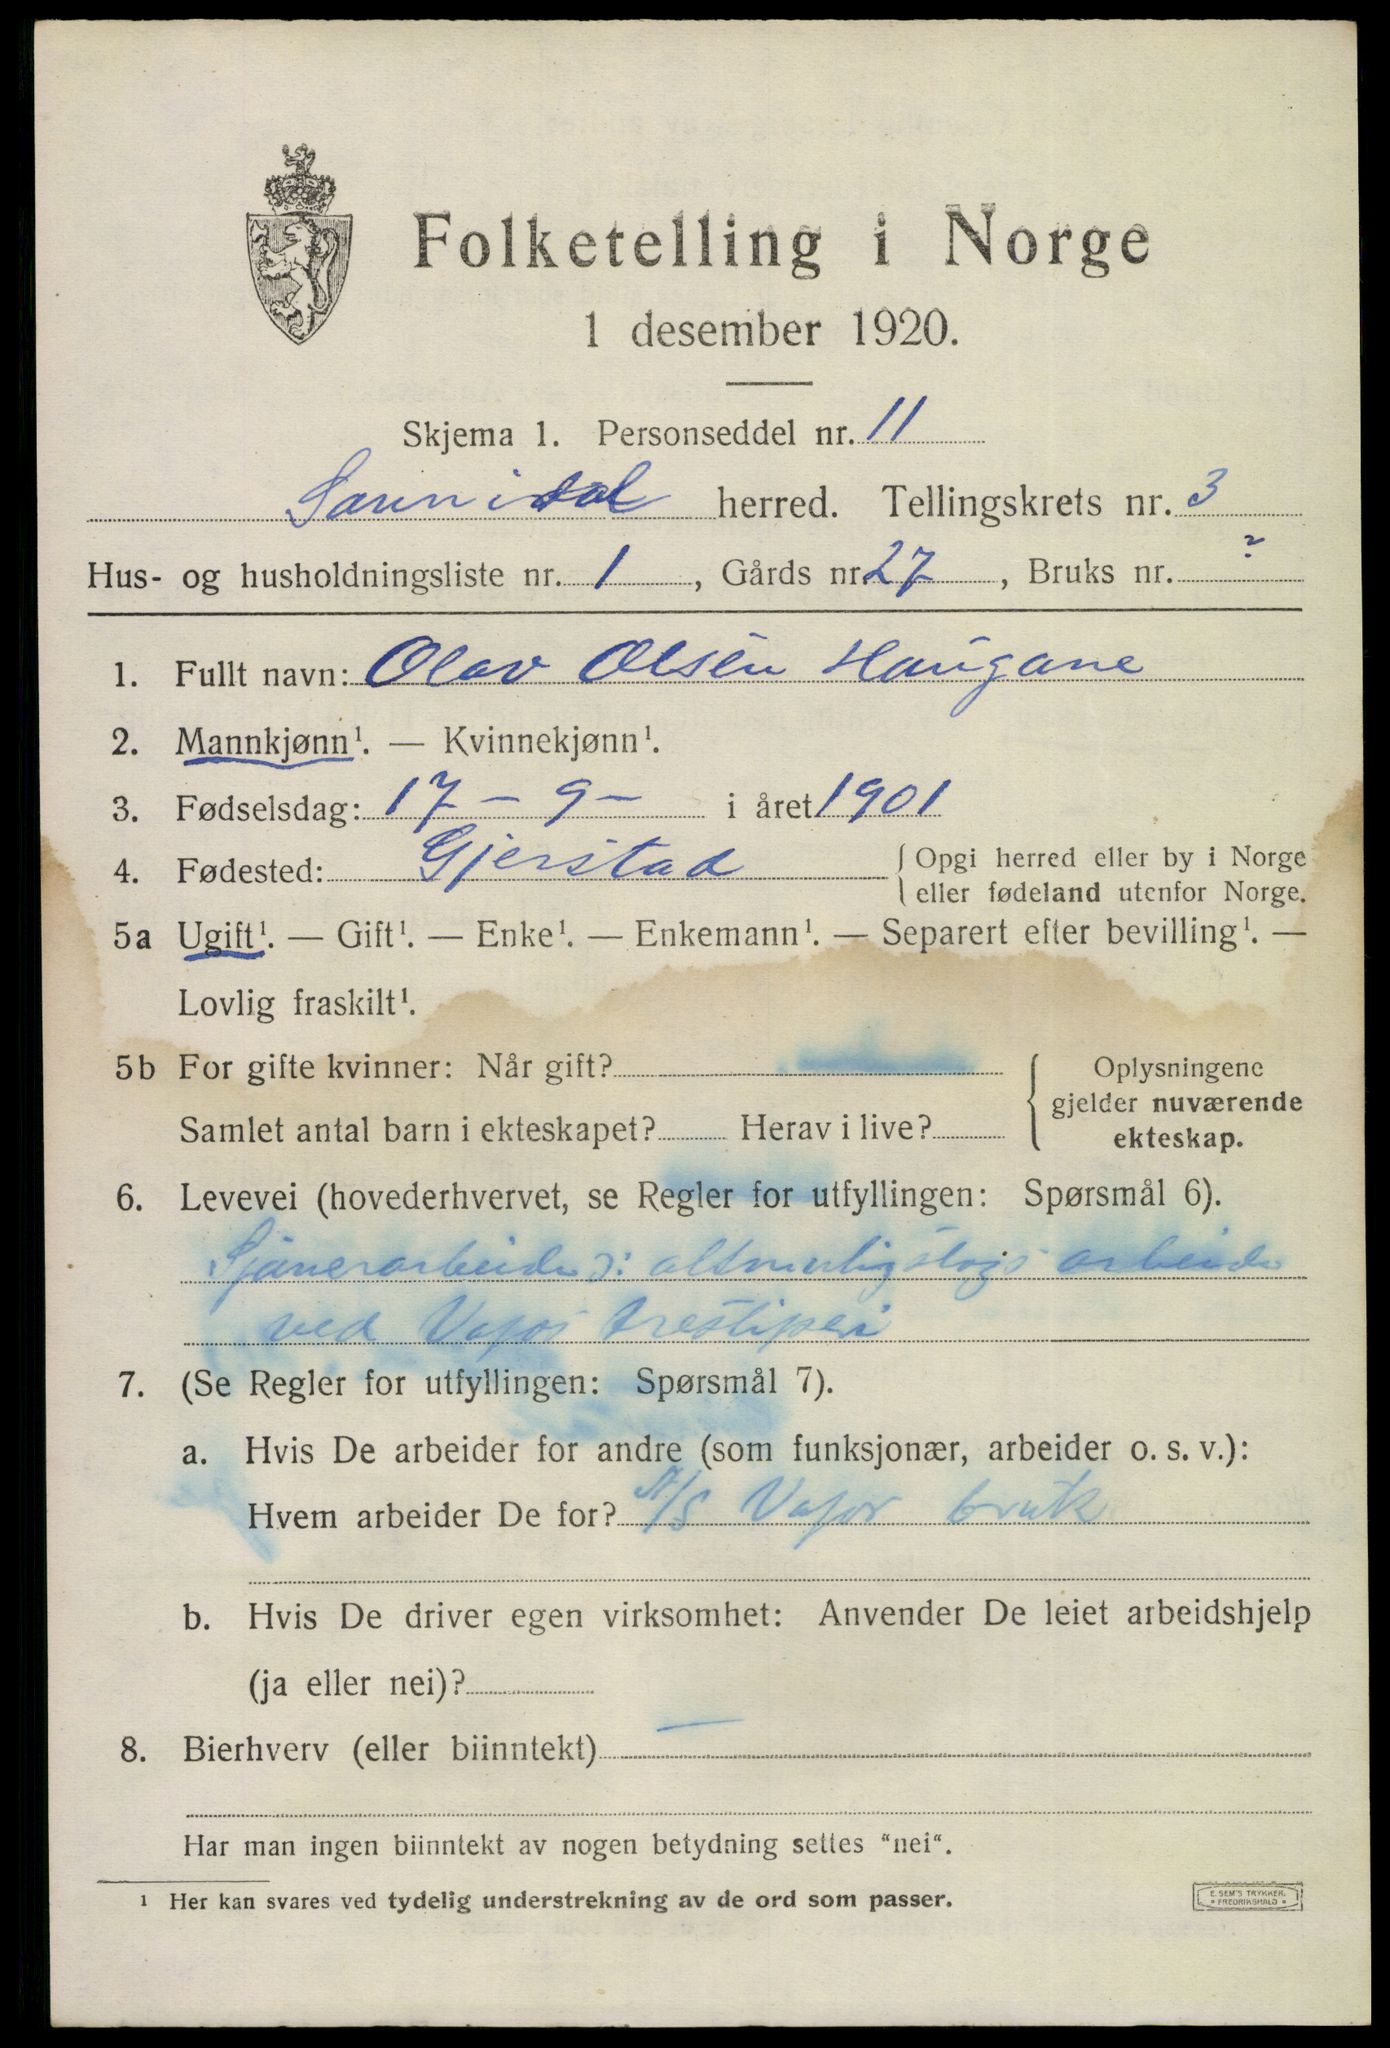 Folketelling i Norge
1 desember 1920.
Skjema 1. Personseddel nr. 11
Sannidal herred. Tellingskrets nr. 3
Hus- og husholdningsliste nr. 1, Gårds nr. 27, Bruks nr. ?
1. Fullt navn: Olav Olsen Haugane
2. Mannkjønn¹. — Kvinnekjønn¹.
3. Fødselsdag: 17 - 9 - i året 1901
4. Fødested: Gjerstad { Opgi herred eller by i Norge
eller fødeland utenfor Norge.
5a Ugift¹. — Gift¹. — Enke¹. — Enkemann¹. — Separert efter bevilling¹. —
Lovlig fraskilt¹.
5b For gifte kvinner: Når gift?
Samlet antal barn i ekteskapet? Herav i live?
Oplysningene
gjelder nuværende
ekteskap.
6. Levevei (hovederhvervet, se Regler for utfyllingen: Spørsmål 6).
altmuligslags arbeide
ved Vafos tresliperi
7. (Se Regler for utfyllingen: Spørsmål 7).
a. Hvis De arbeider for andre (som funksjonær, arbeider o. s. v.):
Hvem arbeider De for? A/S Vafos bruk
b. Hvis De driver egen virksomhet: Anvender De leiet arbeidshjelp
(ja eller nei)?
8. Bierhverv (eller biinntekt) —
Har man ingen biinntekt av nogen betydning settes "nei".
¹ Her kan svares ved tydelig understrekning av de ord som passer.
E. SEM'S TRYKKERI.
FREDRIKSHALD